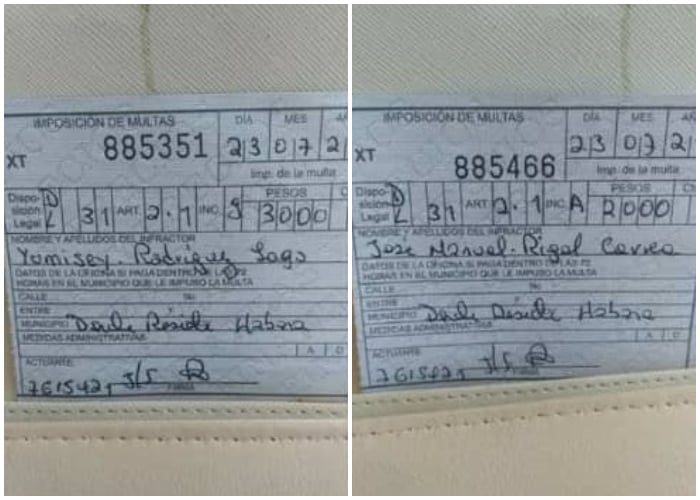 IMPOSICIÓN DE MULTAS DÍA MES
XT 885351 23 07 2
Imp. de la multa
Dispo- sición Legal DL 31 ART. 2.1 INC. g PESOS 3000
NOMBRE Y APELLIDOS DEL INFRACTOR
Yumisey. Rodríguez Lago
DATOS DE LA OFICINA SI PAGA DENTRO DE LAS 72
HORAS EN EL MUNICIPIO QUE LE IMPUSO LA MULTA
CALLE No
ENTRE
MUNICIPIO Donde Reside Habana
MEDIDAS ADMINISTRATIVAS
A D
ACTUANTE
FIRMA
IMPOSICIÓN DE MULTAS DÍA MES AÑ
XT 885466 23 07 2
Imp. de la multa
Dispo- sición Legal DL 31 ART. 2.1 INC. A PESOS 2000
NOMBRE Y APELLIDOS DEL INFRACTOR
Jose Manuel. Rigal Correa
DATOS DE LA OFICINA SI PAGA DENTRO DE LAS 72
HORAS EN EL MUNICIPIO QUE LE IMPUSO LA MULTA
CALLE No
ENTRE
MUNICIPIO Habana
MEDIDAS ADMINISTRATIVAS
A D
ACTUANTE